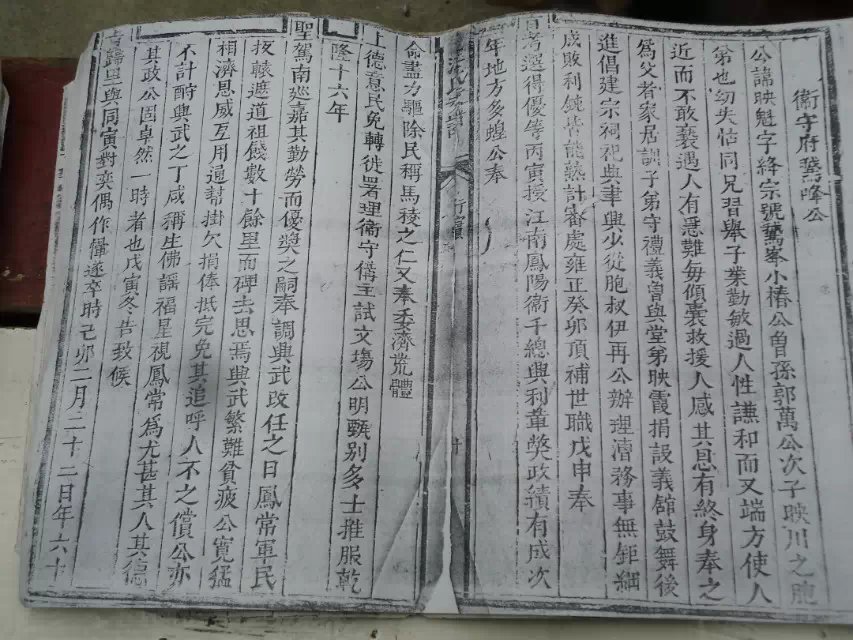 衞守府鰲峰公
公諱映魁字絳宗號鰲峯小椿公曾孫郭萬公次子映川之胞
弟也幼失怙同兄習舉子業勤敏過人性謙和而又端方使人
近而不敢褻遇人有急難每傾囊救援人感其恩有終身奉之
爲父者家居訓子弟守禮義曾與堂弟映霞捐設義舘鼓舞後
進倡建宗祠祀典聿興少從胞叔伊再公辦理漕務事無鉅細
成敗利鈍皆能熟計審處雍正癸卯頂補世職戊申奉
百考選得優等丙寅授江南鳳陽衞千總興利革獘政績有成次
年地方多蝗公奉
命盡力驅除民稱馬稜之仁又奉委濟荒體
上德意民免轉徙署理衞守備主試文塲公明甄别多士推服乾
隆十六年
聖駕南廵嘉其勤勞而優奬之嗣奉調興武政任之日鳳常軍民
扳轅遮道祖餞數十餘里而碑去思焉興武繁難貧疲公寬猛
相濟恩威互用還幫掛欠捐俸抵完免其追呼人不之償公亦
不計酧興武之丁咸稱生佛謡福星視鳳常爲尢甚其人其德
其政公固卓然一時者也戊寅冬告致候
歸里與同寅對奕偶作僊遂卒時己卯二月二十二日年六十